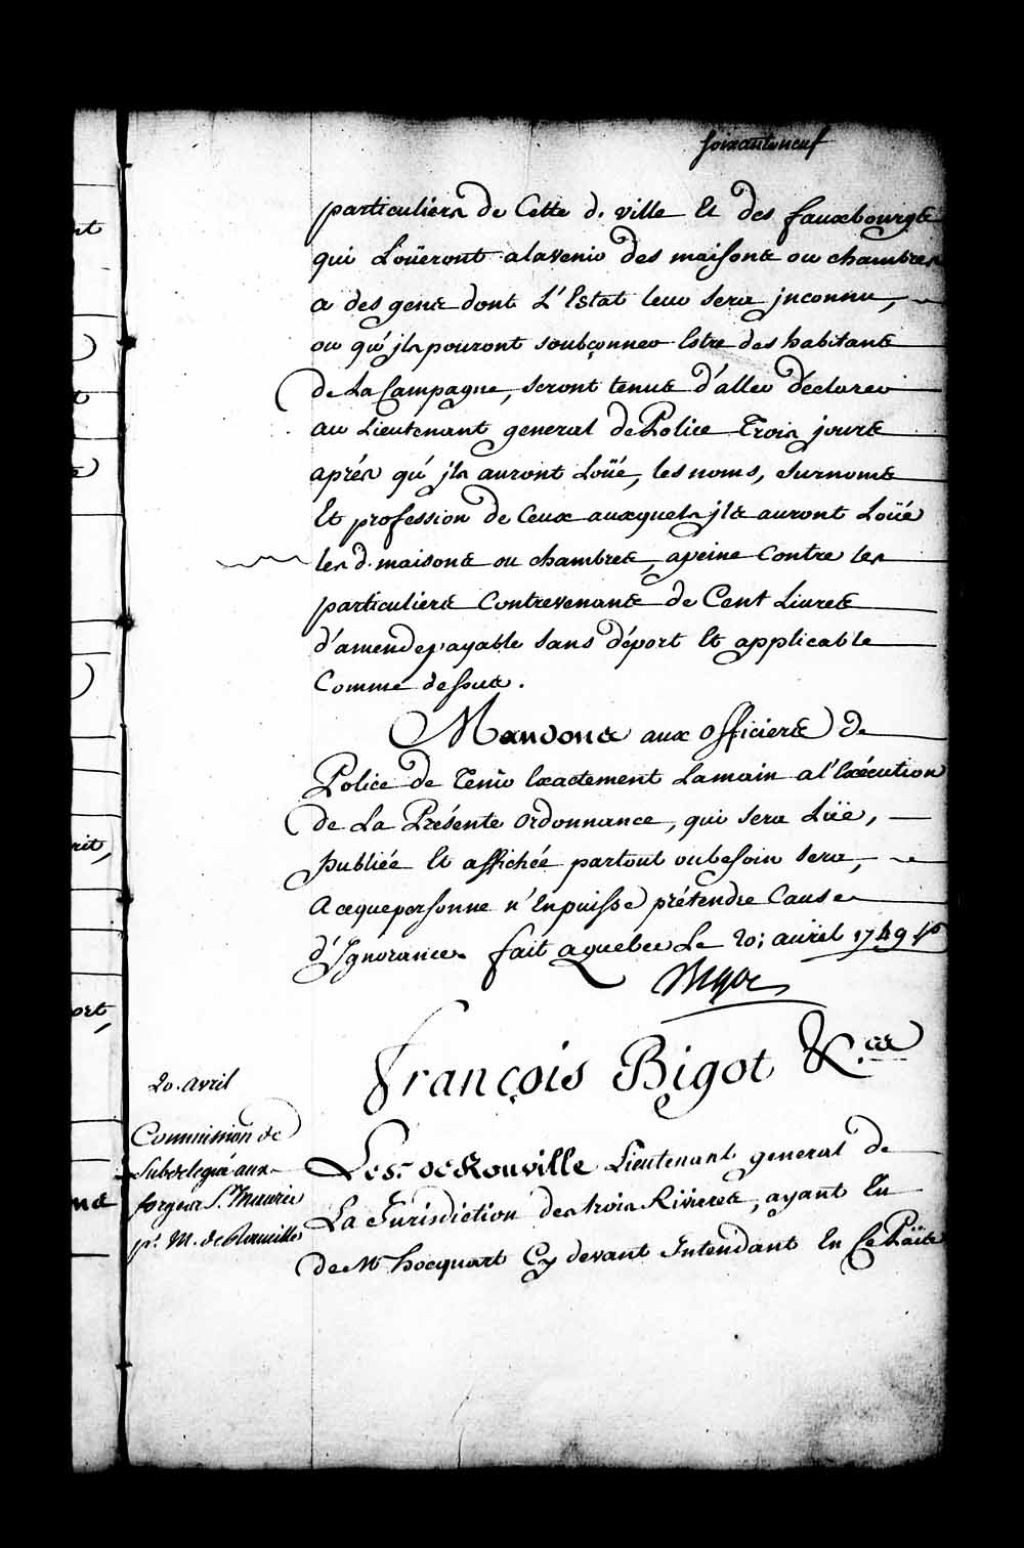 soixante neuf
particuliers de Cette d. ville Et des fauxbourgs
qui Loüeront alavenir des maisons ou chambres
a des gens dont L'Estat leur sera jnconnu,
ou qu'jls pouront soubçonner Estre des habitans
de La Campagne, seront tenus d'aller déclarer
au Lieutenant general de Police Trois jours
aprés qu'jls auront Loüé, les noms, surnoms
Et profession de Ceux auxquels jls auront Loüé
les d. maisons ou chambres, apeine Contre les
particuliers Contrevenants de Cent Livres
d'amende payable sans déport Et applicable
Comme dessus.
Mandons aux officiers de
Police de Tenir Exactement Lamain a l'Exécution
de La Présente ordonnance, qui sera Lüe,
publiée Et affichée partout oubesoin sera,
Acequepersonne n'Enpuisse prétendre Cause
d'Ignorance. fait aquebec Le 20: avril 1749
Bigot
françois Bigot &.ca
20. avril
Commission de
Subdelegué aux
forges St. Maurice
pr. M. de Rouville
Le Sr. de Rouville Lieutenant general de
La Jurisdiction des trois Rivieres, ayant Eu
de Mr hocquart Cy devant Intendant En Ce Païs
nt
rit,
ort,